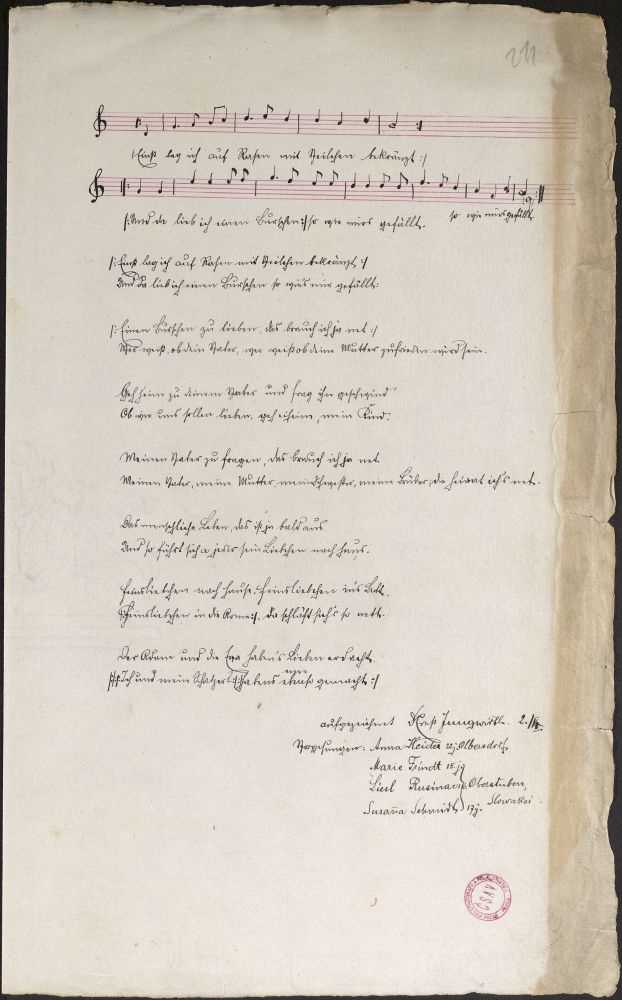 /:Einst lag ich auf Rasen mit Veilchen bekränzt:/
/:Und da lieb ich einen Burschen:/ so wie mirs gefällt. so wie mirs gefällt.
/:Einst lag ich auf Rasen mit Veilchen bekränzt:/
Und da lieb ich einen Burschen so wies mir gefällt:
/:Einen Burschen zu lieben, das brauch ich ja net:/
Wer weiß, ob dein Vater, wer weiß ob deine Mutter zufrieden wird sein.
Geh heim zu deinem Vater und frag ihn geschwind
Ob wir uns sollen lieben, geh heim, mein Kind.
Meinen Vater zu fragen, das brauch ich ja net
Meinen Vater, meine Mutter, meine Schwester, meine Brüder, die heirat ich's net.
Das menschliche Leben, das ist ja bald aus
Und so führt sich a jeder sein Liebchen nach haus.
Feinsliebchen nach Hause, Feinsliebchen ins Bett,
/:Feinsliebchen in die Arme:/, da schläft sich's so nett.
Der Adam und die Eva haben's Lieben erdacht.
Ich und mein Schatzerl:/ habens ebenso gemacht:/
aufgezeichnet Jungwirth 2./
Anna Heider 22j. Olbersdorf,
Marie 15 j
Liesl Oberstuben,
Susanna Schmidt 17j. Slowakei.